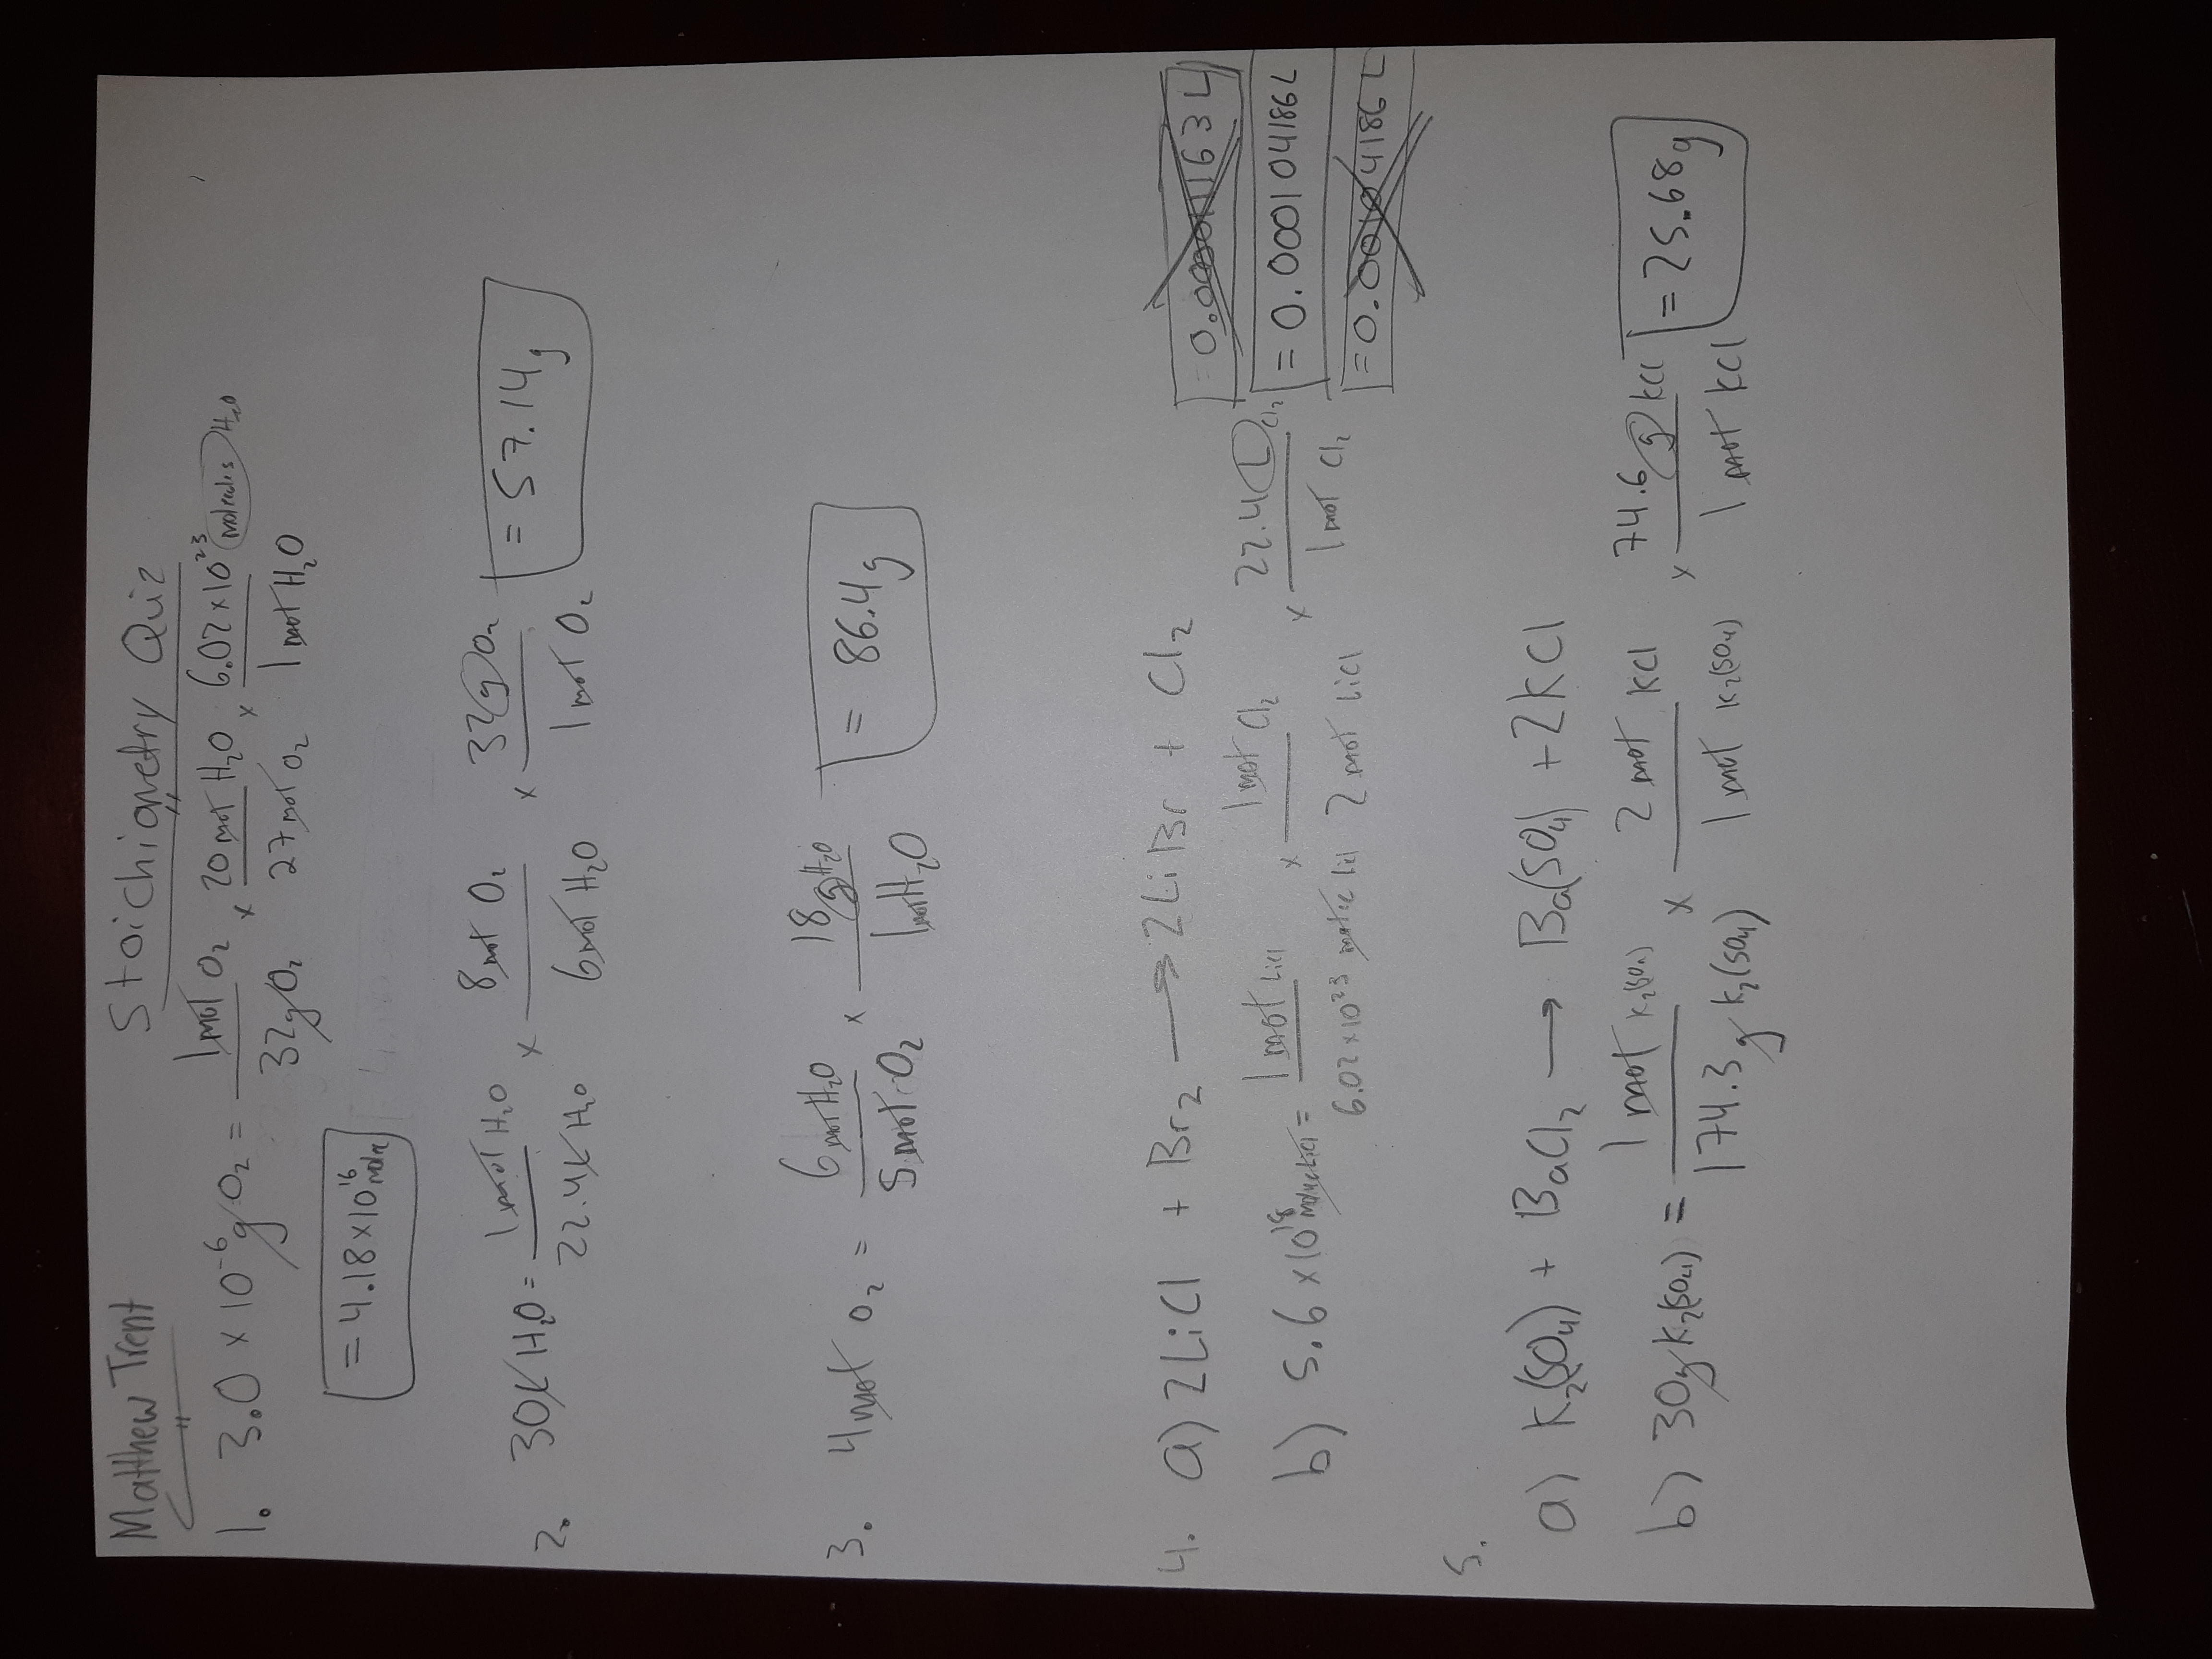 Matthew Trent
Stoichiometry Quiz
1. 3.0 × 10⁻⁶ g O₂ = 1 mol O₂ / 32 g O₂ × 20 mol H₂O / 27 mol O₂ × 6.02 × 10²³ molecules H₂O / 1 mol H₂O
= 4.18 × 10¹⁶ molec
2. 30 L H₂O = 1 mol H₂O / 22.4 L H₂O × 8 mol O₂ / 6 mol H₂O × 32 g O₂ / 1 mol O₂ = 57.14 g
3. 4 mol O₂ = 6 mol H₂O / 5 mol O₂ × 18 g H₂O / 1 mol H₂O = 86.4 g
4. a) 2LiCl + Br₂ → 2LiBr + Cl₂
b) 5.6 × 10¹⁸ molec LiCl = 1 mol LiCl / 6.02 × 10²³ molec LiCl × 1 mol Cl₂ / 2 mol LiCl × 22.4 L Cl₂ / 1 mol Cl₂ = 0.000104186 L
= 0.00104186 L
5.
a) K₂(SO₄) + BaCl₂ → Ba(SO₄) + 2KCl
b) 30g K₂(SO₄) = 1 mol K₂(SO₄) / 174.3 g K₂(SO₄) × 2 mol KCl / 1 mol K₂(SO₄) × 74.6 g KCl / 1 mol KCl = 25.68g